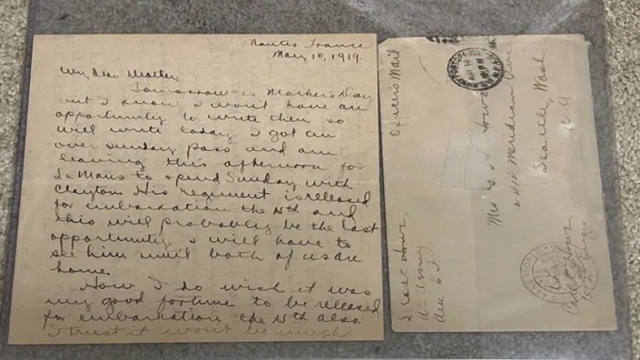 Nantes France
May 10, 1919.
My Dear Mother,
Tomorrow is Mother's Day
but I know I won't have an
opportunity to write then so
will write today. I got an
over sunday pass and am
leaving this afternoon for
Le Mans to spend Sunday with
Clayton. His regiment is released
for embarkation the 15th and
this will probably be the last
opportunity I will have to
see him until both of us are
home.
How I do wish it was
my good fortune to be released
for embarkation the 15th also.
I trust it won't be much
Officer's Mail
Mrs
Meridian Ave
Seattle, Wash
U.S. Army